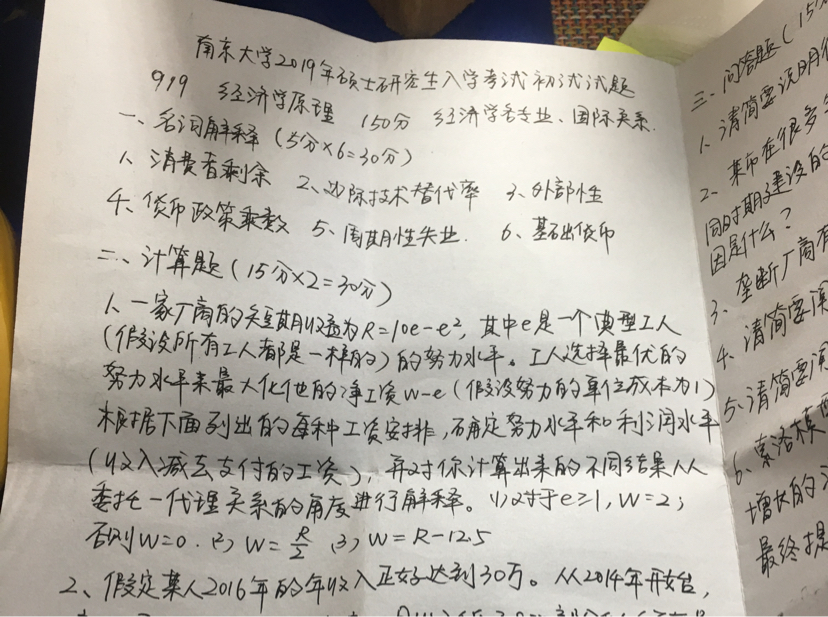 南京大学2019年硕士研究生入学考试初试试题
919 经济学原理 150分 经济学各专业、国际关系.
一、名词解释(5分×6=30分)
1、消费者剩余 2、边际技术替代率 3、外部性
4、货币政策乘数 5、周期性失业. 6、基础货币
二、计算题(15分×2=30分)
1、一家厂商的短期收益为R=10e-e², 其中e是一个典型工人
(假设所有工人都是一样的)的努力水平。工人选择最优的
努力水平来最大化他的净工资w-e(假设努力的单位成本为1)
根据下面列出的每种工资安排,确定努力水平和利润水平
(收入减去支付的工资),并对你计算出来的不同结果从
委托一代理关系的角度进行解释。(1)对于e≥1, W=2;
否则W=0. (2) W=R/2 (3) W=R-12.5
2、假定某人2016年的年收入正好达到30万。从2014年开始,
三、问答题(15分
1、请简要说明
2、某市在很多
同时期建设的
因是什么?
3、垄断厂商有
4、请简要
5、请简要
6、索洛模
增长的
最终